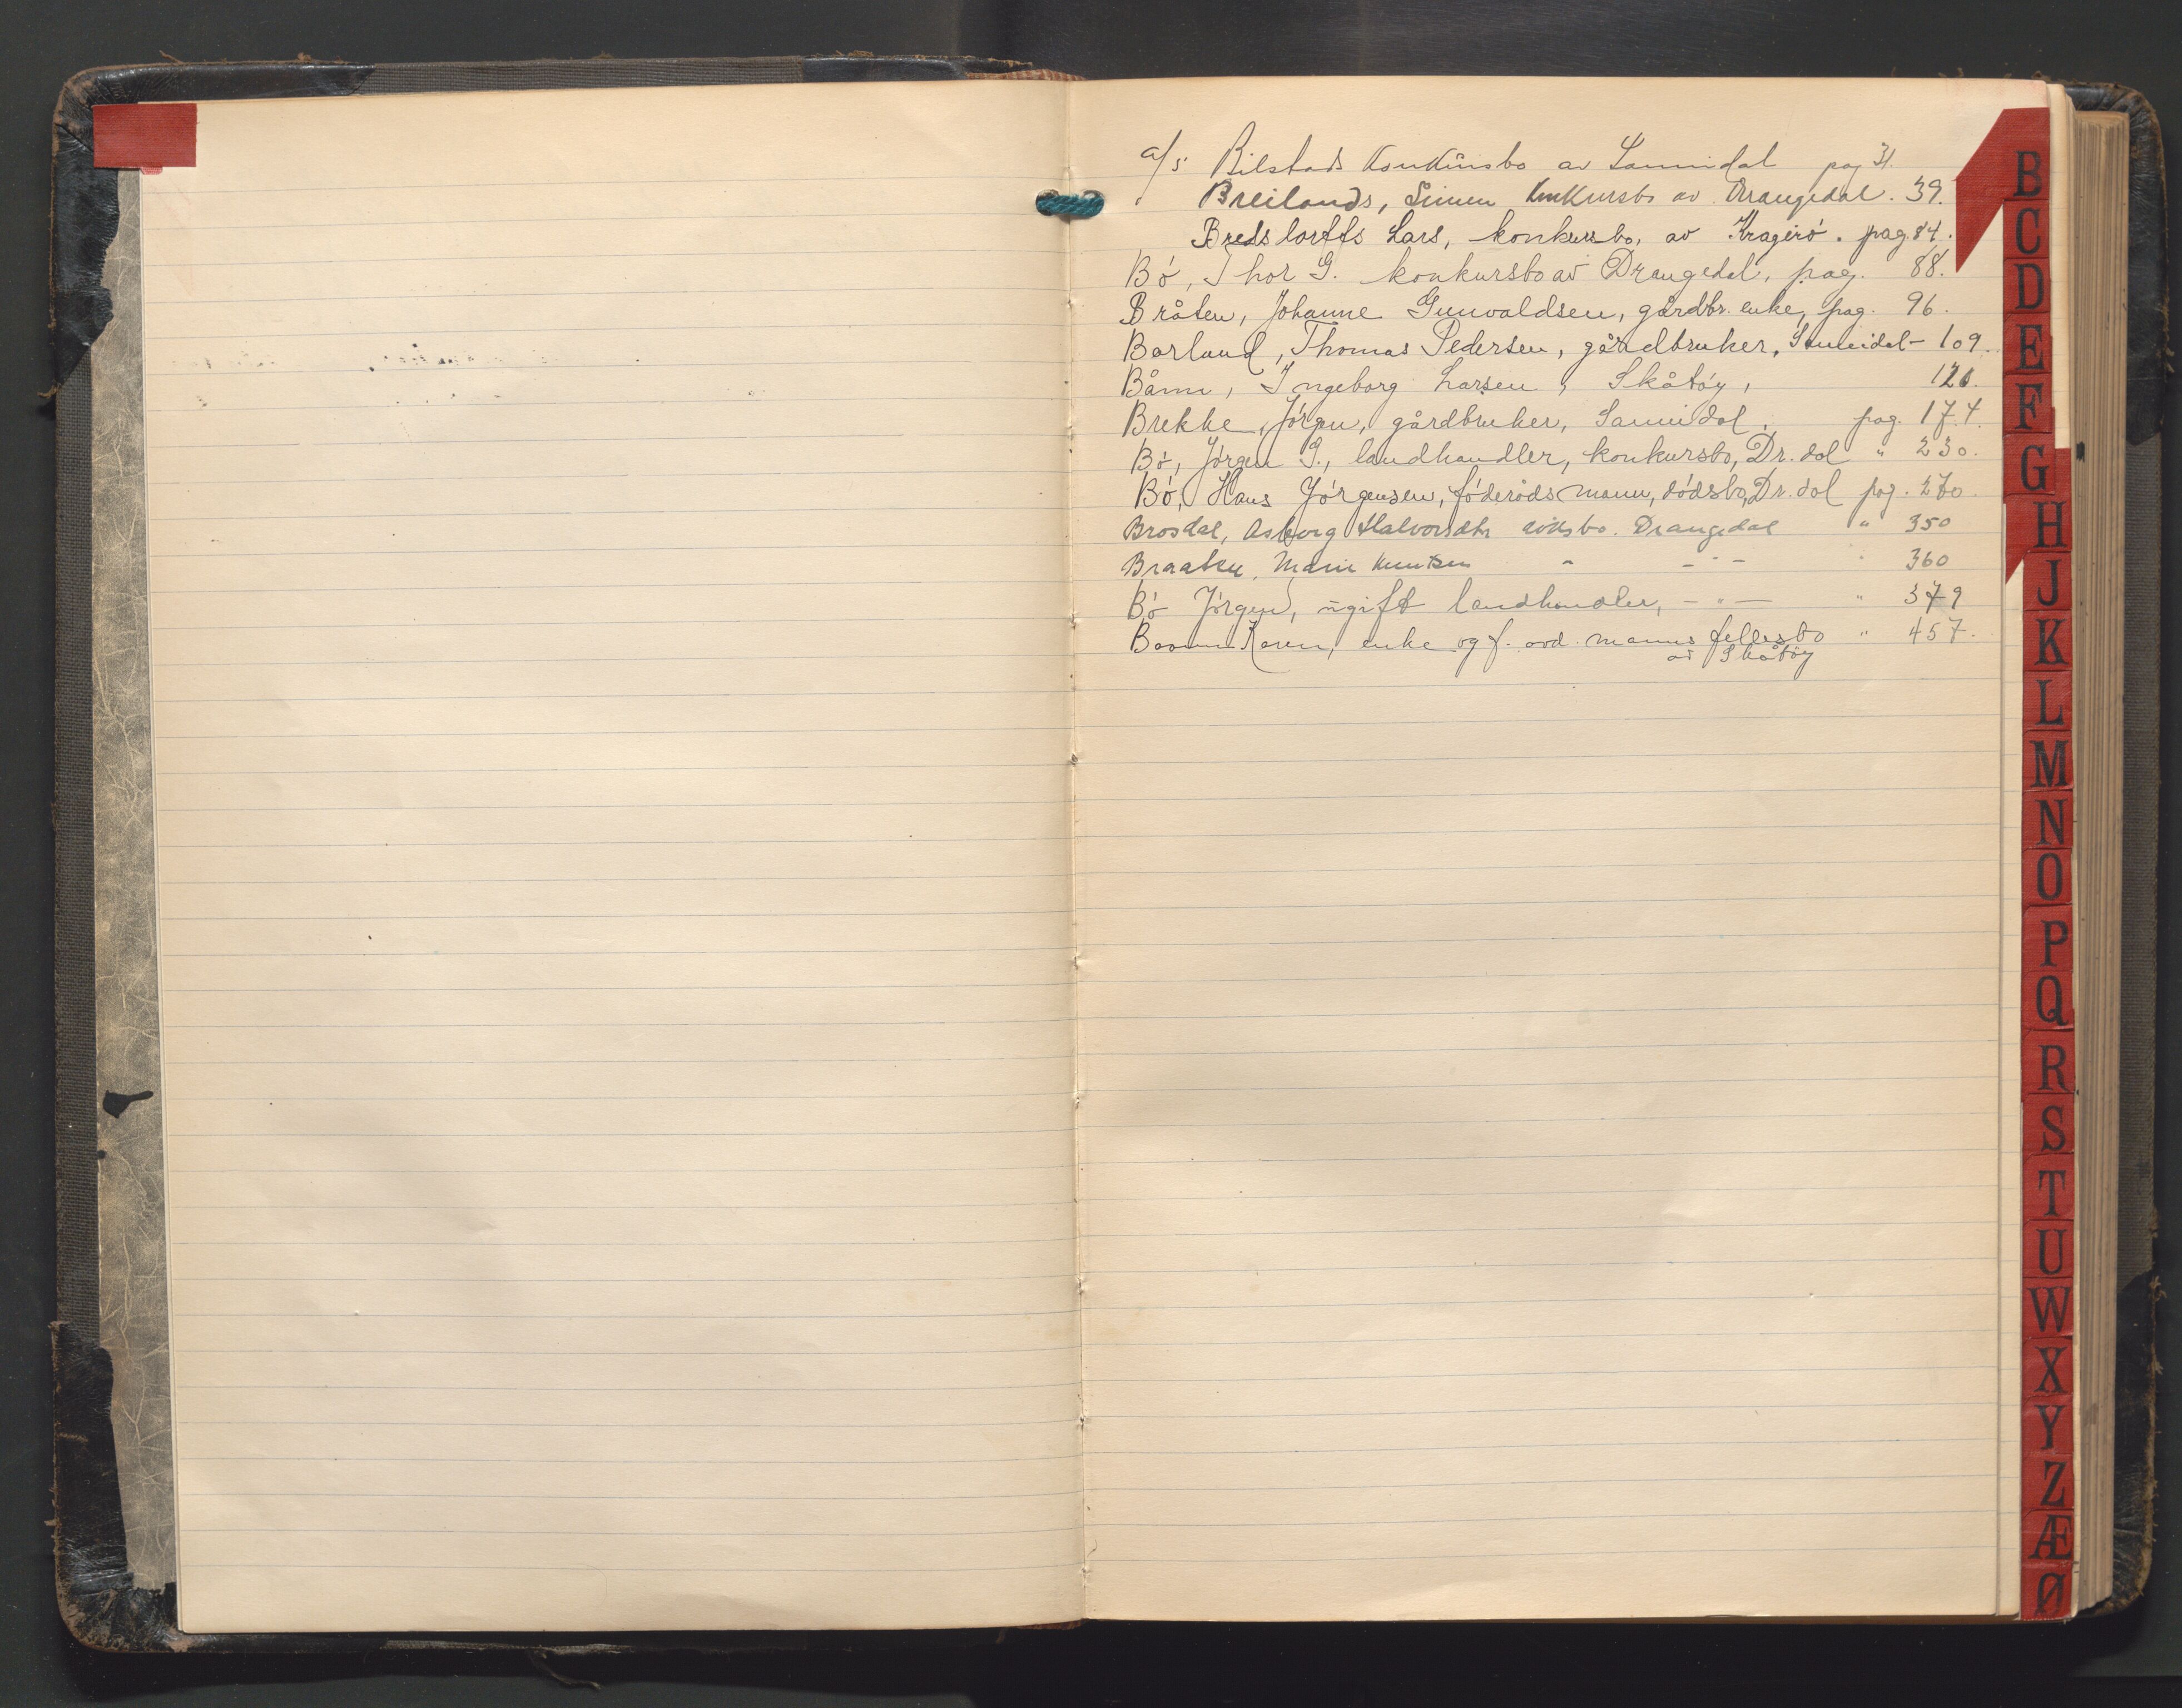 a/s Bilstads Konkursbo av Sannidal pag 31.
Breilands, Simen Konkursbo av Drangedal. 39.
Bredslorffs Lars, konkursbo, av Kragerö. pag. 84.
Bö, Thor G. konkursbo av Drangedal, pag. 88.
Bråten, Johanne Gunvaldsen, gårdbr. enke, pag. 96.
Barland, Thomas Pedersen, gårdbruker, Sannidal - 109.
Bånn, Ingeborg Larsen, Skåtöy,
Brekke, Jörgen, gårdbruker, Sannidal. pag. 174.
Bö, Jörgen G., landhandler, konkursbo, Dr.dal " 230.
Bö, Hans Jörgensen, föderådsmann, dödsbo, Dr.dal pag. 270.
Brosdal, Asborg Halvorsdtr dödsbo. Drangedal " 350
Braaten, Marie Knutsen " - " - " 360
Bö Jörgen, ugift landhandler, - " - " 379
Karen, enke og f. avd. manns fellesbo " 457.
av Skåtöy
B
C
D
E
F
G
H
J
K
L
M
N
O
P
Q
R
S
T
U
W
X
Y
Z
Æ
Ø